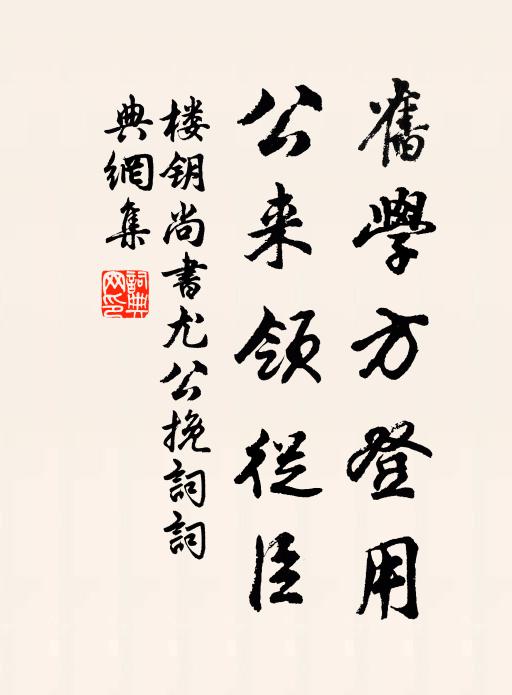 舊學方登用
公来領從臣
楼钥尚書尤公挽詞詞
典網集
詞典網印